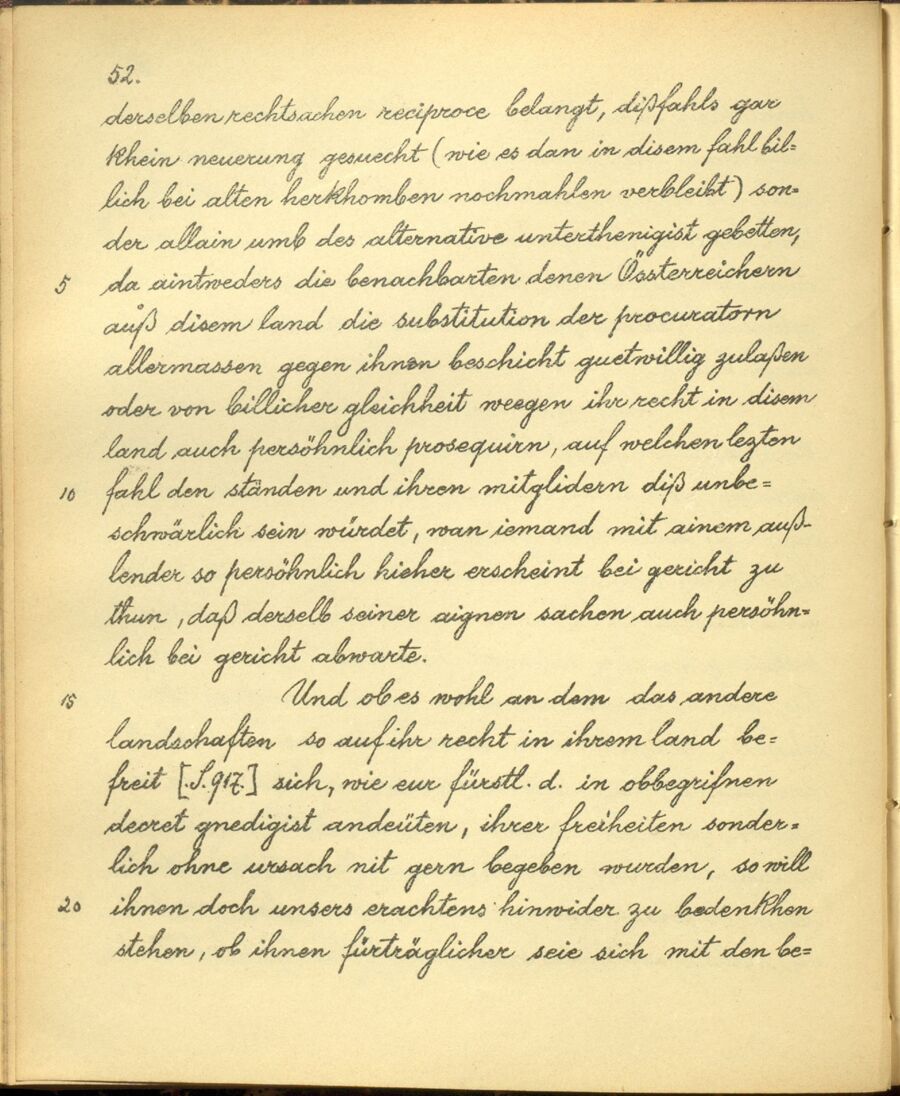 52.
derselben rechtsachen reciproce belangt, dißfahls gar
khein neuerung gesuecht (wie es dan in disem fahl bil=
lich bei alten herkhomben nochmahlen verbleibt) son=
der allain umb des alternative unterthenigist gebetten,
5 da aintweders die benachbarten denen Össterreichern
auß disem land die substitution der procuratorn
allermassen gegen ihnen beschicht guetwillig zulaßen
oder von billicher gleichheit weegen ihr recht in disem
land auch persöhnlich prosequirn, auf welchen lezten
10 fahl den ständen und ihren mitglidern diß unbe=
schwärlich sein würdet, wan iemand mit ainem auß-
lender so persöhnlich hieher erscheint bei gericht zu
thun, daß derselb seiner aignen sachen auch persöhn=
lich bei gericht abwarte.
15 Und ob es wohl an dem das andere
landschaften so auf ihr recht in ihrem land be=
freit [.S. 917.] sich, wie eur fürstl. d. in obbegrifnen
decret gnedigist andeüten, ihrer freiheiten sonder=
lich ohne ursach nit gern begeben wurden, so will
20 ihnen doch unsers erachtens hinwider zu bedenkhen
stehen, ob ihnen fürträglicher seie sich mit den be=